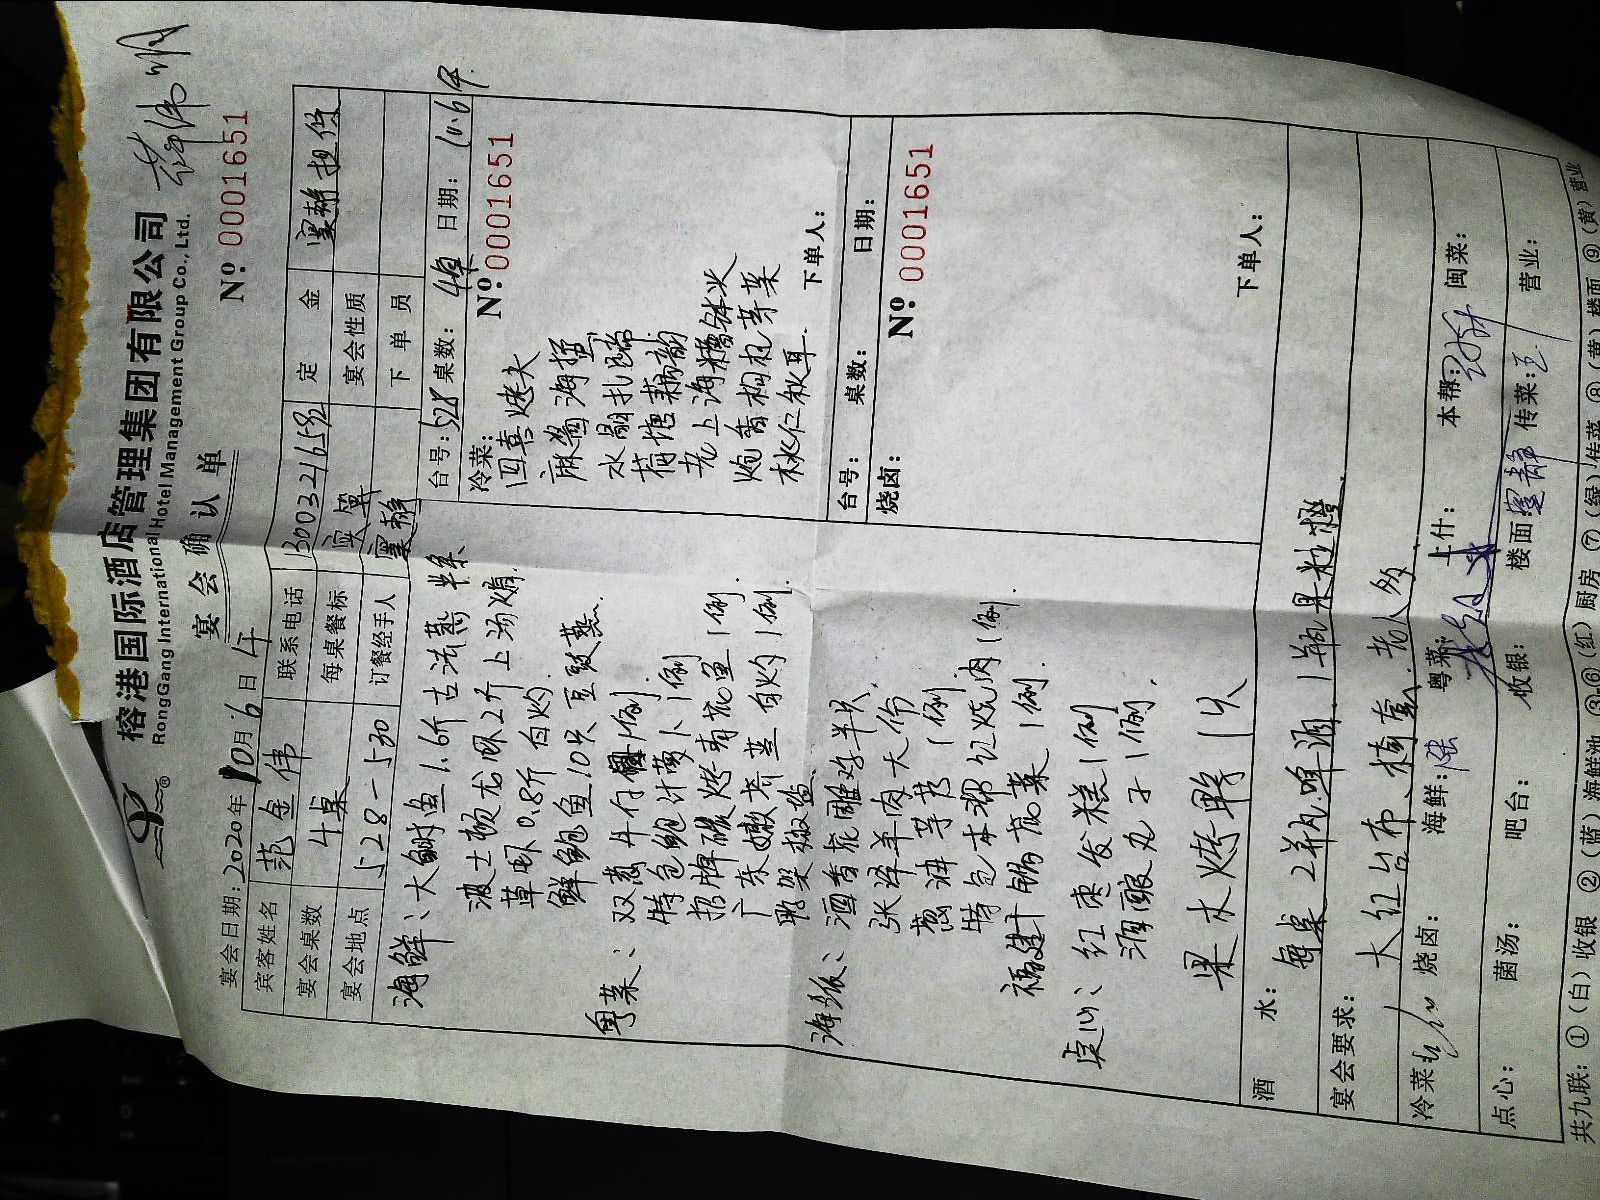 榕港国际酒店管理集团有限公司
RongGang International Hotel Management Group Co., Ltd.
宴会确认单
Nº 0001651
宴会日期: 2020年10月6日午
宾客姓名 范金伟 联系电话 13003216582 定金
宴会桌数 4桌 每桌餐标 实算 宴会性质
宴会地点 528-530 订餐经手人 下单员
海鲜: 大鲥鱼1.6斤古法蒸半条
波士顿龙虾2斤上汤焗
草虾0.8斤白灼
鲜鲍鱼10只豆豉蒸
粤菜: 双葱牛仔 1例
特色鲍汁萝卜1例
招牌碳烤 1例
广东嫩芥兰 白灼1例
鸭架椒盐
海派: 酒香花雕鸡半只
张泽羊肉大份
葱油芋艿1例
特色本邦红烧肉1例
福建 菜1例
点心: 红枣发糕1例
酒酿丸子1例
果木烤鸭1只
台号: 528 桌数: 4桌 日期: 10.6午
Nº 0001651
冷菜:
四喜烤夫
麻酱海蜇
水晶扎蹄
荷塘藕韵
老上海糟钵头
炝香枸杞芽菜
桃仁秋耳
下单人:
台号: 桌数: 日期:
烧卤: Nº 0001651
下单人:
酒水: 每桌2瓶啤酒 1瓶果粒橙
宴会要求: 大红台布、椅套、老人多
冷菜 烧卤: 海鲜: 陆 粤菜: 上什: 本帮: 闽菜:
点心: 菌汤: 吧台: 收银: 楼面: 传菜: 营业:
共九联: ①(白)收银 ②(蓝)海鲜池 ③-⑥(红)厨房 ⑦(绿)传菜 ⑧(黄)楼面 ⑨(黄)营业